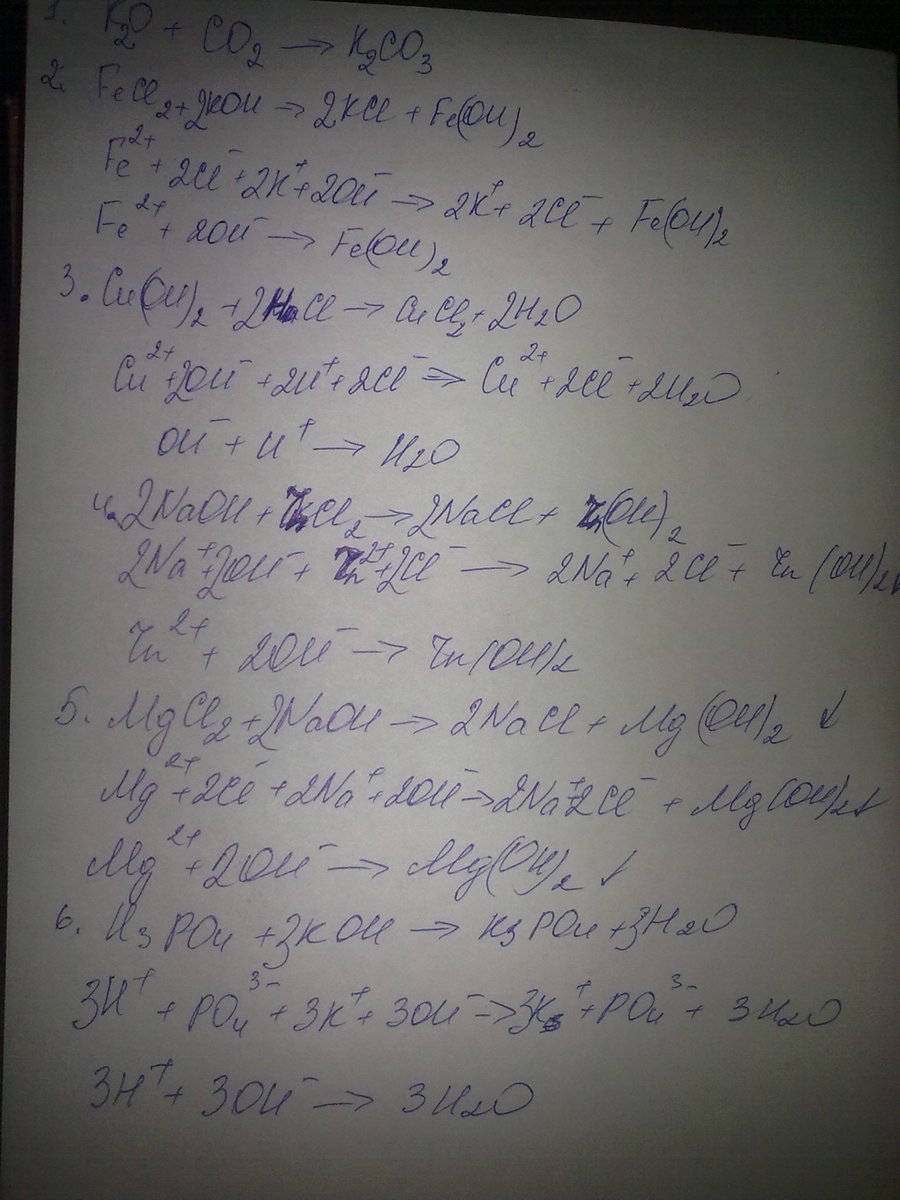 1. K₂O + CO₂ → K₂CO₃
2. FeCl₂ + 2KOH → 2KCl + Fe(OH)₂
Fe²⁺ + 2Cl⁻ + 2K⁺ + 2OH⁻ → 2K⁺ + 2Cl⁻ + Fe(OH)₂
Fe²⁺ + 2OH⁻ → Fe(OH)₂
3. Cu(OH)₂ + 2HCl → CuCl₂ + 2H₂O
Cu²⁺ + 2OH⁻ + 2H⁺ + 2Cl⁻ → Cu²⁺ + 2Cl⁻ + 2H₂O
OH⁻ + H⁺ → H₂O
4. 2NaOH + ZnCl₂ → 2NaCl + Zn(OH)₂
2Na⁺ + 2OH⁻ + Zn²⁺ + 2Cl⁻ → 2Na⁺ + 2Cl⁻ + Zn(OH)₂↓
Zn²⁺ + 2OH⁻ → Zn(OH)₂
5. MgCl₂ + 2NaOH → 2NaCl + Mg(OH)₂ ↓
Mg²⁺ + 2Cl⁻ + 2Na⁺ + 2OH⁻ → 2Na⁺ + 2Cl⁻ + Mg(OH)₂↓
Mg²⁺ + 2OH⁻ → Mg(OH)₂ ↓
6. H₃PO₄ + 3KOH → K₃PO₄ + 3H₂O
3H⁺ + PO₄³⁻ + 3K⁺ + 3OH⁻ → 3K⁺ + PO₄³⁻ + 3H₂O
3H⁺ + 3OH⁻ → 3H₂O